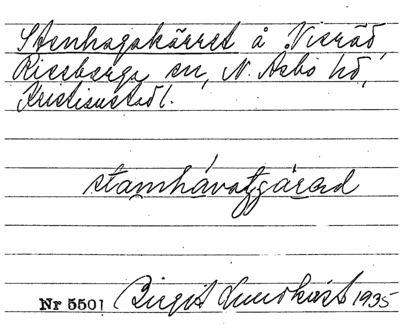 Stenhagakärret å Visröd,
Riseberga sn, N. Åsbo hd,
Kristianstad l.
Nr 5501 Birgit Lundkvist 1935